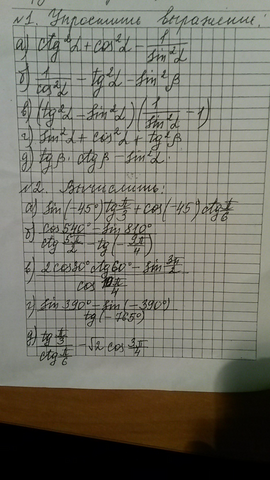 №1. Упростить выражение:
а) ctg²α + cos²α − 1/sin²α
б) 1/cos²α − tg²α − sin²β
в) (tg²α − sin²α)(1/sin²α − 1)
г) sin²α + cos²α + tg²β
д) tgβ · ctgβ − sin²α.
№2. Вычислить:
а) sin(−45°) tg π/3 + cos(−45°) ctg π/6
б) (cos 540° − sin 810°)/(ctg 5π/2 − tg(−3π/4))
в) (2cos 30° ctg 60° − sin 3π/2)/(cos π/4)
г) (sin 390° − sin(−390°))/(tg(−765°))
д) (tg π/3)/(ctg π/6) − √2 cos 3π/4